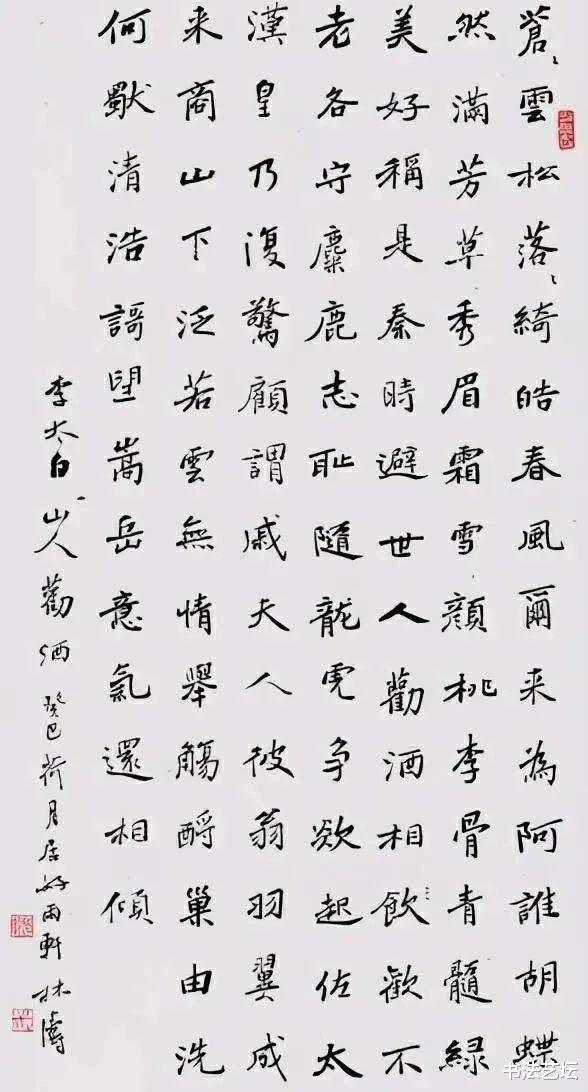 蒼〻雲松落〻綺皓春風爾来為阿誰胡蝶
然滿芳草秀眉霜雪顏桃李骨青髓緑
美好稱是秦時避世人勸酒相飲歡不
老各守麋鹿志耻隨龍虎争欲起佐太
漢皇乃復驚顧謂戚夫人彼翁羽翼成
来商山下泛若雲無情舉觴酹巢由洗
何獨清浩謌望嵩岳意氣還相傾
李太白山人勸酒癸巳荷月居好雨軒林濤
书法艺坛